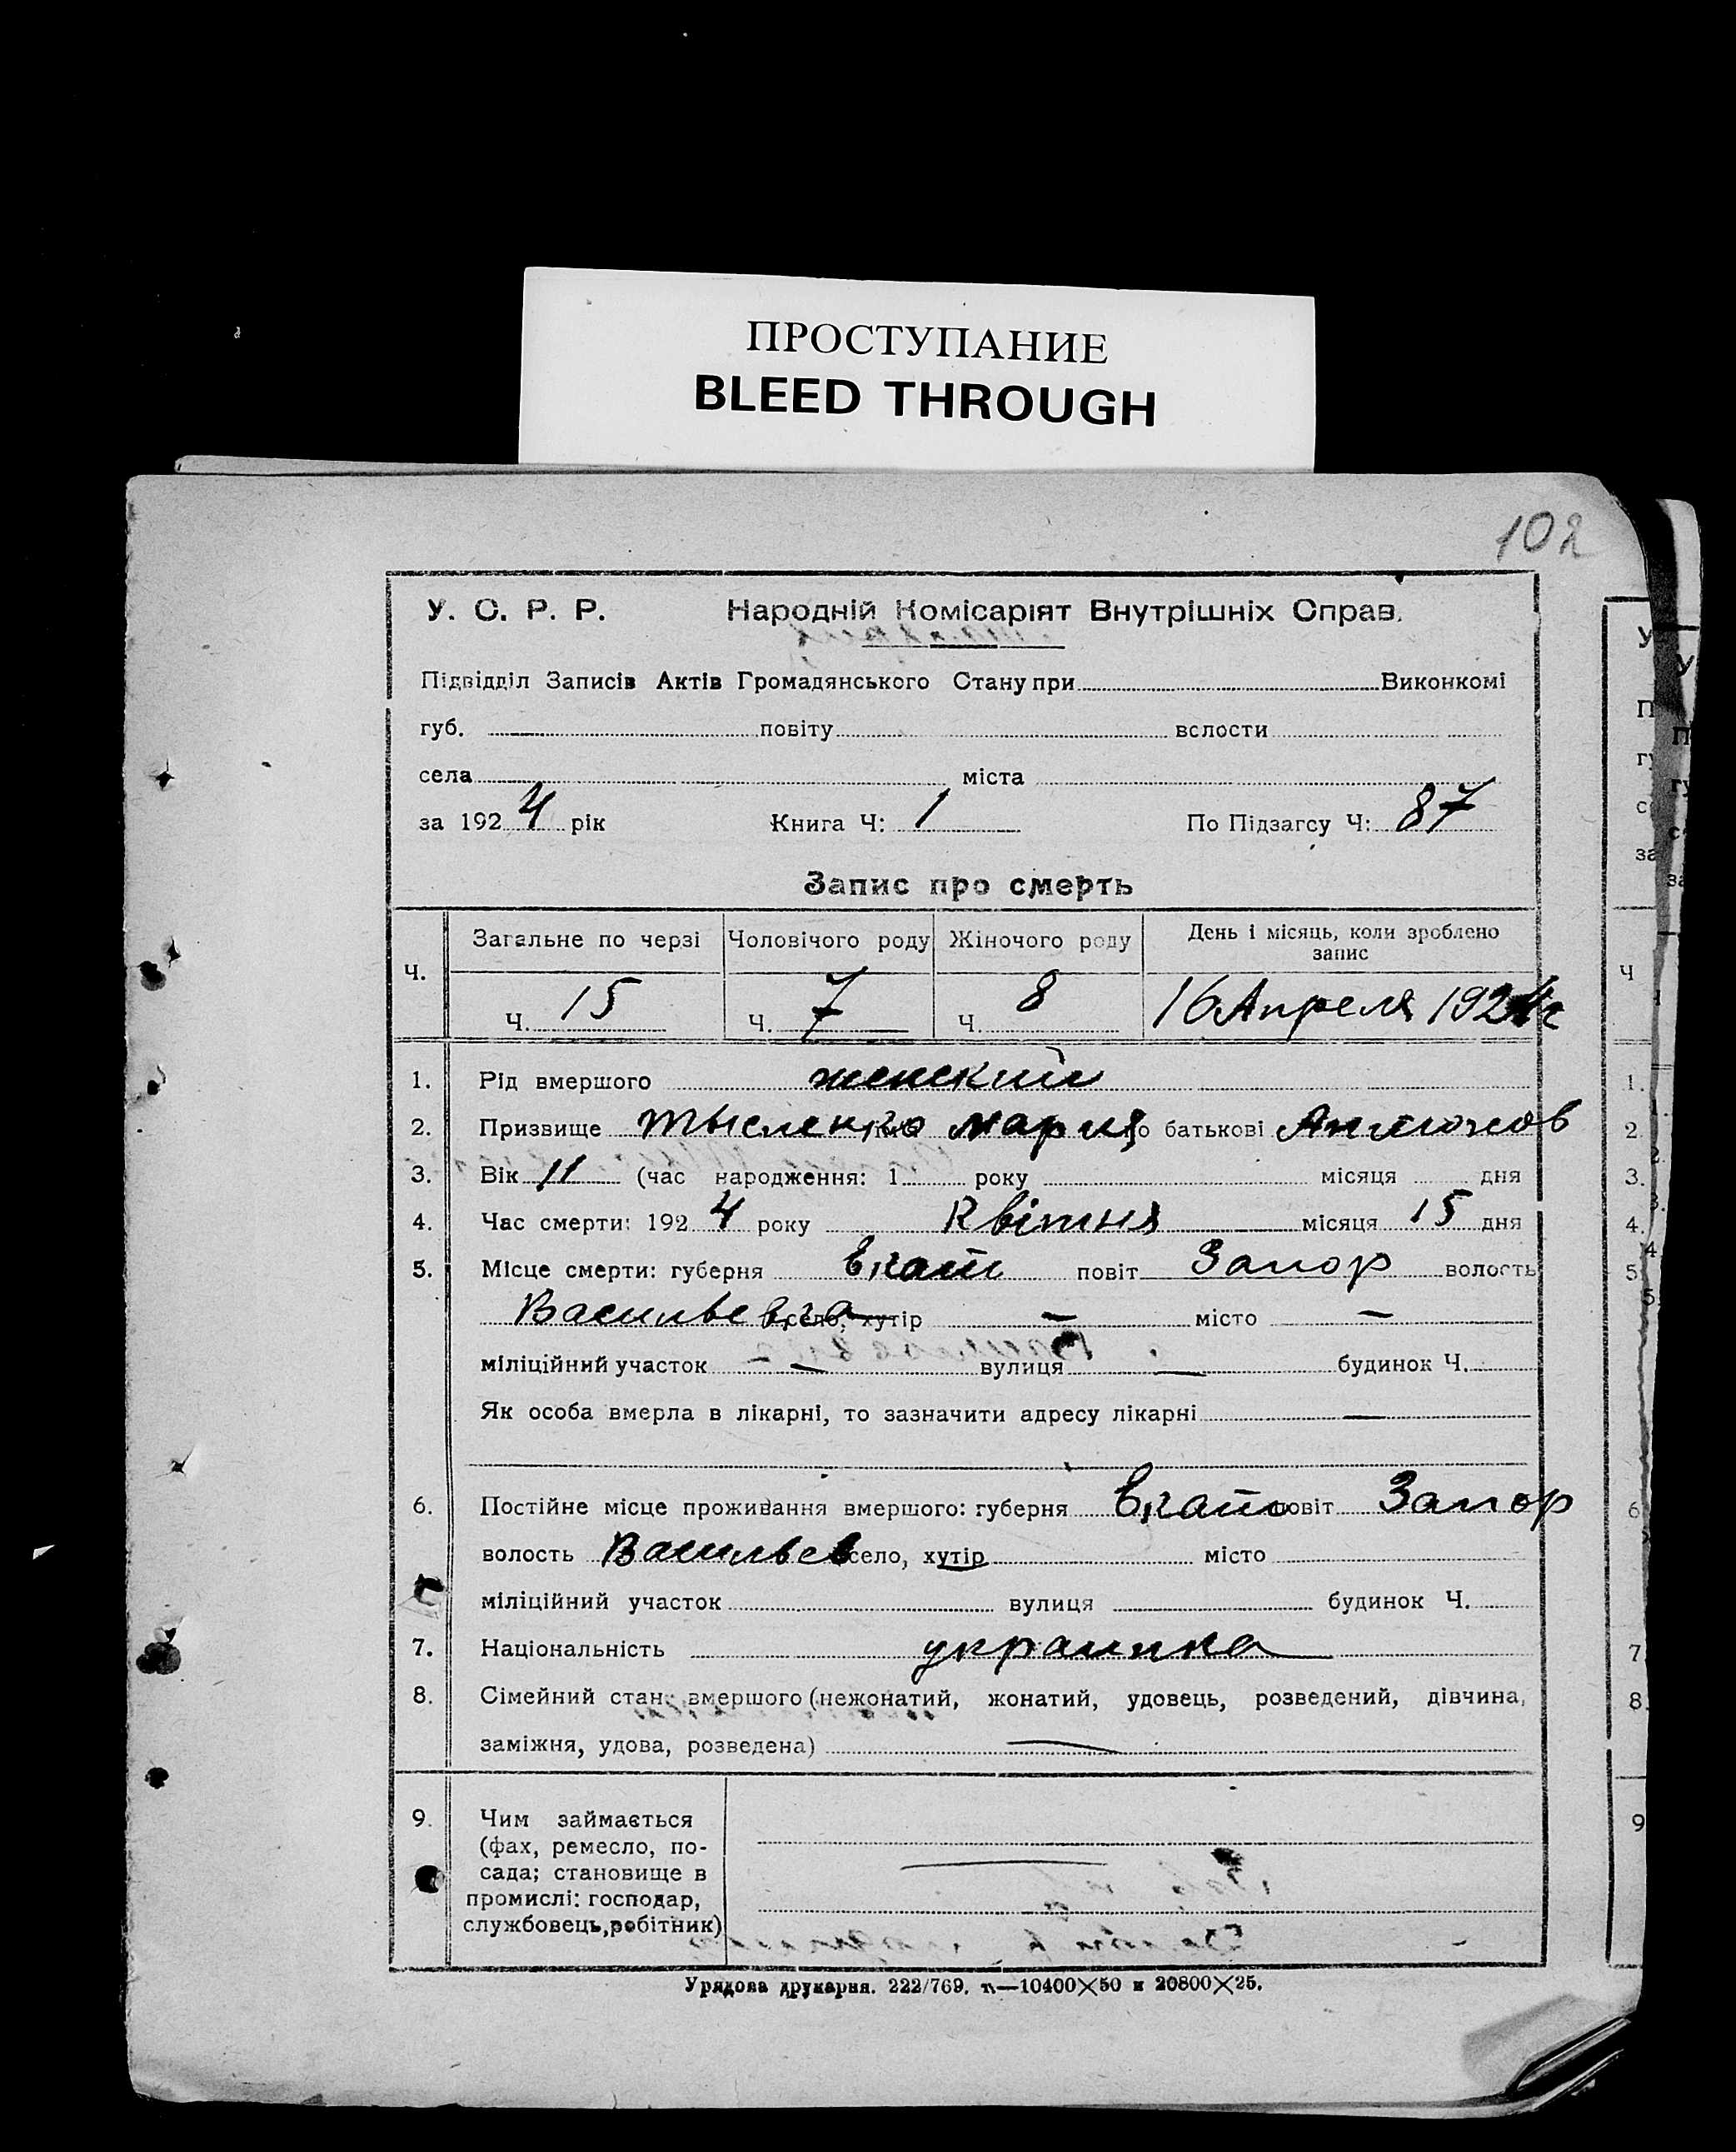 ПРОСТУПАНИЕ
BLEED THROUGH
102
У. С. Р. Р. Народній Комісаріят Внутрішніх Справ.
Підвідділ Записів Актів Громадянського Стану при Виконкомі
губ. повіту волости
села міста
за 1924 рік Книга Ч: 1 По Підзагсу Ч: 87
Запис про смерть
Ч. Загальне по черзі Чоловічого роду Жіночого роду День і місяць, коли зроблено запис
Ч. 15 Ч. 7 Ч. 8 16 Апреля 1924 г
1. Рід вмершого женский
2. Призвище Тысленко ім'я Мария по батькові Антонов
3. Вік 11 (час народження: 1 року місяця дня
4. Час смерти: 1924 року Квітня місяця 15 дня
5. Місце смерти: губерня Екат повіт Запор волость
Васильевка село, хутір — місто —
міліційний участок — вулиця — будинок Ч.
Як особа вмерла в лікарні, то зазначити адресу лікарні —
6. Постійне місце проживання вмершого: губерня Екат повіт Запор
волость Васильев село, хутір місто
міліційний участок вулиця будинок Ч.
7. Національність украинка
8. Сімейний стан вмершого (нежонатий, жонатий, удовець, розведений, дівчина,
заміжня, удова, розведена) —
9. Чим займається
(фах, ремесло, по-
сада; становище в
промислі: господар,
службовець, робітник)
Урядова друкарня. 222/769. п—10400×50 и 20800×25.